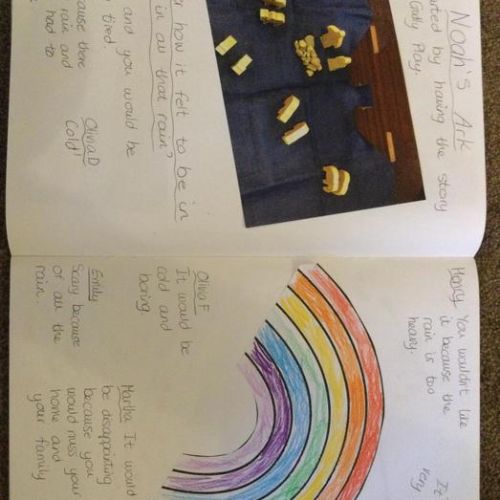 Noah's Ark
ated by having the story
Godly Play.
r how it felt to be in
in all that rain?
and you would be
tired.
ause there
rain and
had to
Olivia D
Cold!
Henry You wouldn't like
it because the
rain is too
heavy.
It
Olivia F
It would be
cold and
boring
Emily
Scary because
of all the
rain.
Martha It would
be disappointing
because you
would miss your
home and
your family